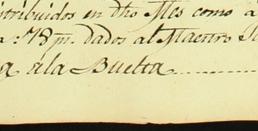 stribuidos en dho Mes como a
: 78 p.s dados al Maestro
a â la Buelta